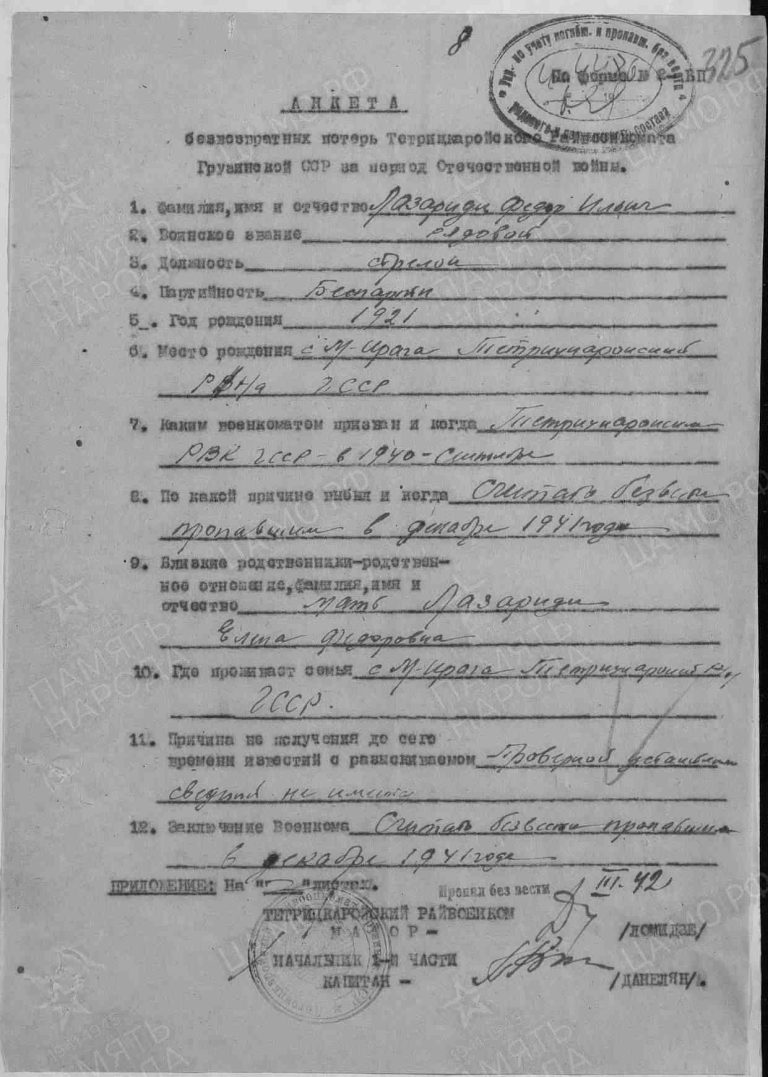 8
325
Упр. по учету погибш. и пропавш. без вести
рядового и сержантского состава
По форме № 2-БП
АНКЕТА
безвозвратных потерь Тетрицкаройского Райвоенкомата
Грузинской ССР за период Отечественной войны.
1. Фамилия,имя и отчество Лазариди Федор Ильич
2. Воинское звание рядовой
3. Должность стрелок
4. Партийность Беспартийн
5. Год рождения 1921
6. Место рождения с М-Ирага Тетрицкаройский
Р-на ГССР
7. Каким военкоматом призван и когда Тетрицкаройским
РВК ГССР - в 1940 - Сентябре
8. По какой причине выбыл и когда Считать безвести
пропавшим в декабре 1941 года
9. Близкие родственники-родствен-
ное отношение,фамилия,имя и
отчество мать Лазариди
Елена Федоровна
10. Где проживает семья с М-Ирага Тетрицкаройский
ГССР.
11. Причина не получения до сего
времени известий о разыскиваемом Проверкой установлен
сведений не имеется
12. Заключение Военкома Считать безвести пропавшим
в декабре 1941 года
ПРИЛОЖЕНИЕ: На " "листах.
Пропал без вести III-42
ТЕТРИЦКАРОЙСКИЙ РАЙВОЕНКОМ
МАЙОР - /ЛОМИДЗЕ/
НАЧАЛЬНИК 1-й ЧАСТИ
КАПИТАН - /ДАНЕЛЯН/.
ПАМЯТЬ НАРОДА
ЦАМО РФ